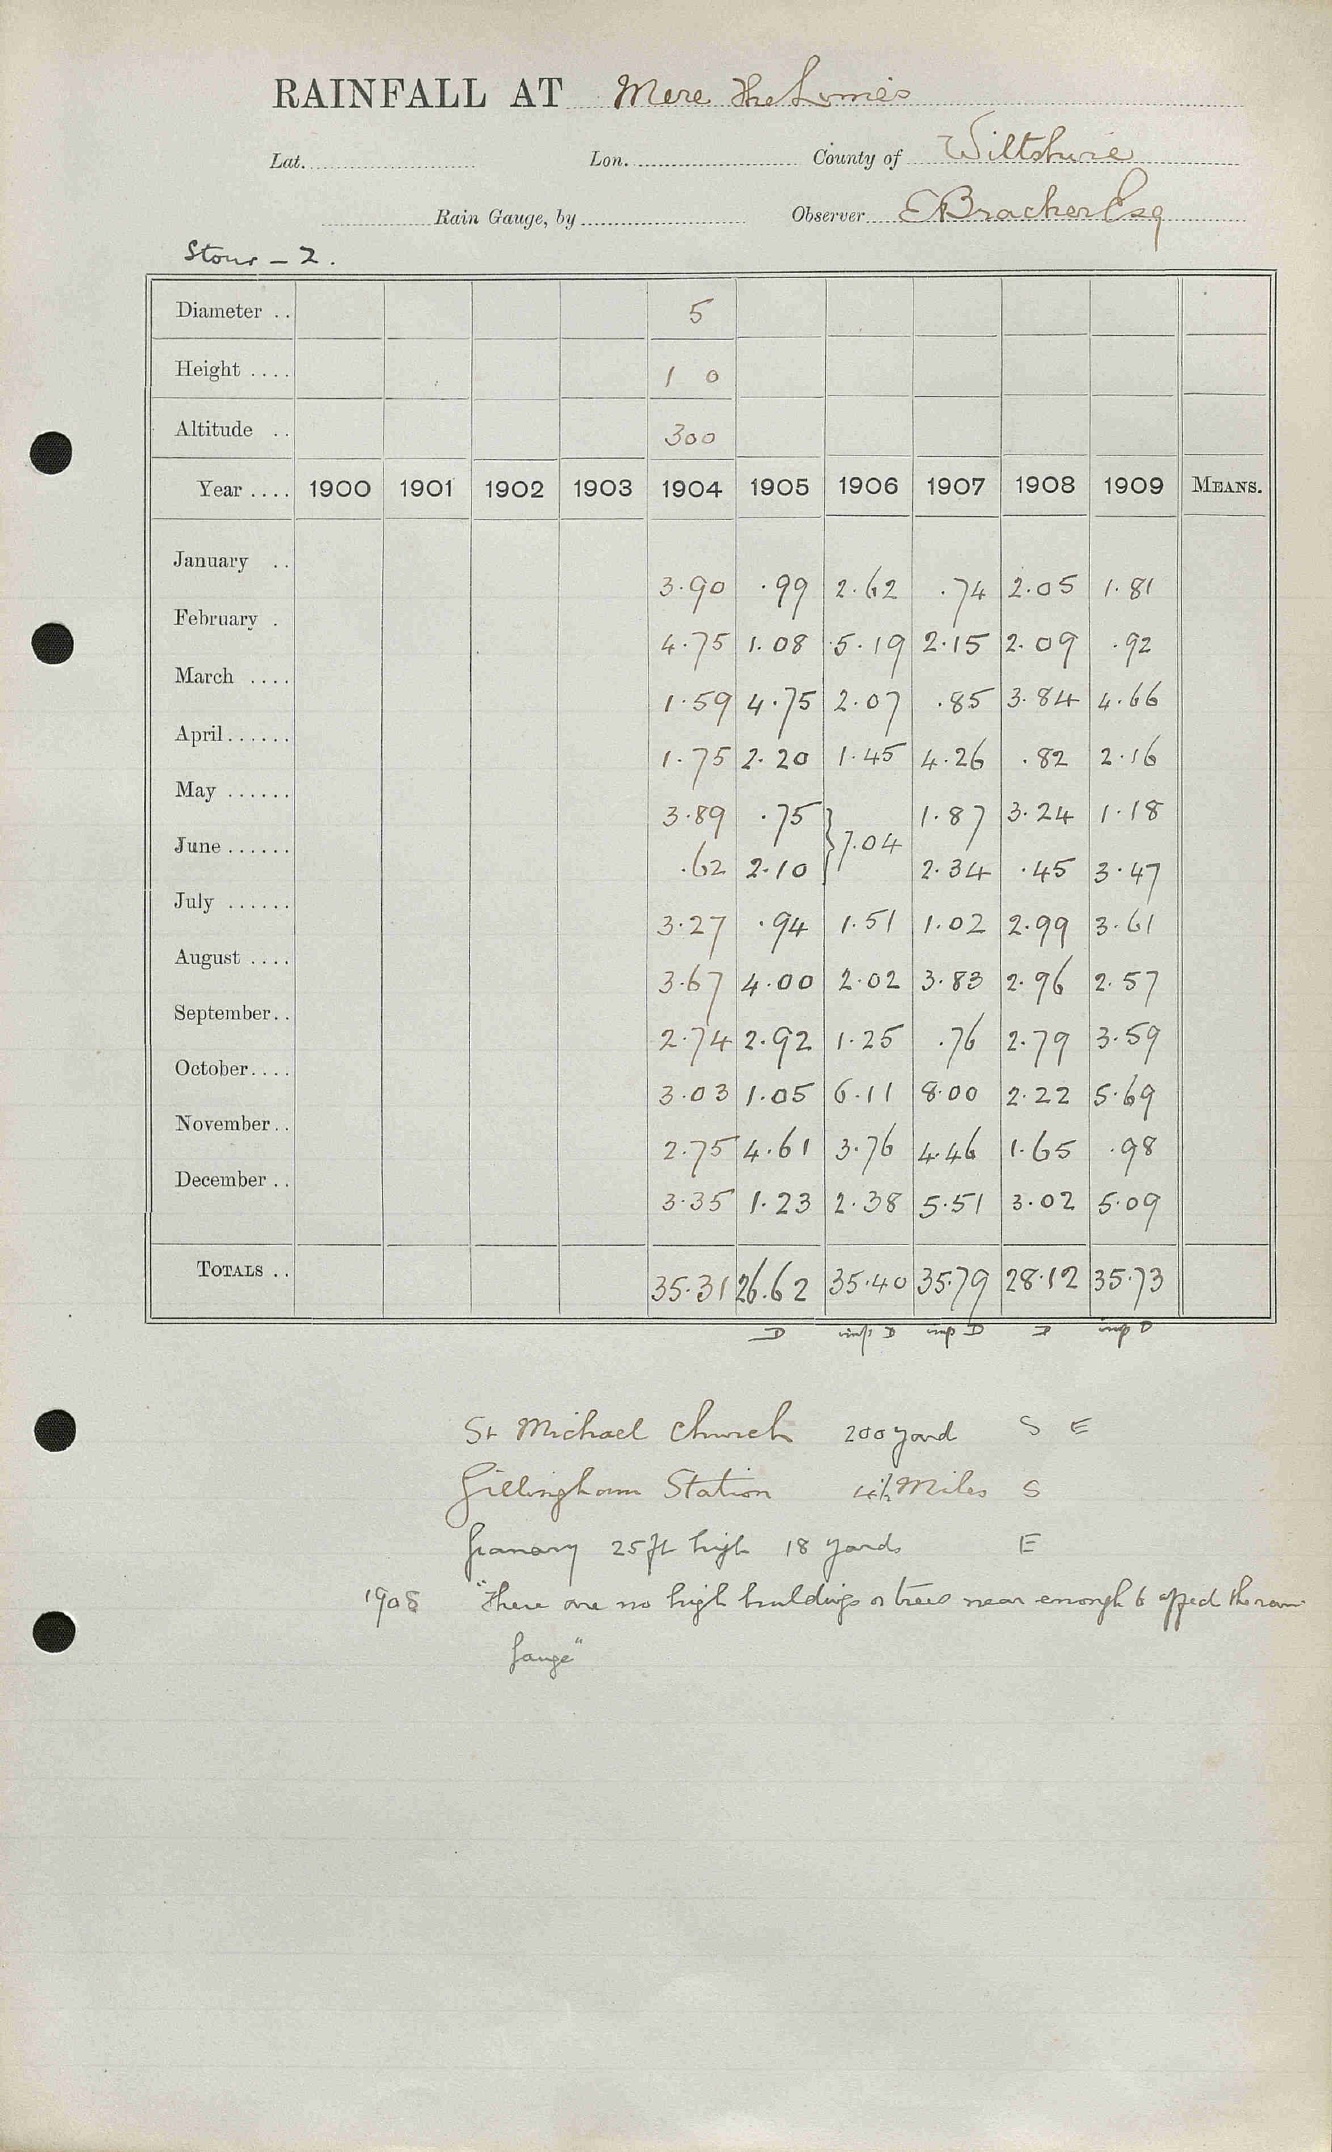 RAINFALL AT Mere The Limes
Lat. Lon. County of Wiltshire
Rain Gauge, by Observer E Bracher Esq
Stour - 2.
Diameter .. 5
Height .... 1 0
Altitude .. 300
Year .... 1900 1901 1902 1903 1904 1905 1906 1907 1908 1909 MEANS.
January .. 3.90 .99 2.62 .74 2.05 1.81
February . 4.75 1.08 5.19 2.15 2.09 .92
March .... 1.59 4.75 2.07 .85 3.84 4.66
April...... 1.75 2.20 1.45 4.26 .82 2.16
May ...... 3.89 .75 } 7.04 1.87 3.24 1.18
June...... .62 2.10 2.34 .45 3.47
July ...... 3.27 .94 1.51 1.02 2.99 3.61
August .... 3.67 4.00 2.02 3.83 2.96 2.57
September.. 2.74 2.92 1.25 .76 2.79 3.59
October.... 3.03 1.05 6.11 8.00 2.22 5.69
November.. 2.75 4.61 3.76 4.46 1.65 .98
December .. 3.35 1.23 2.38 5.51 3.02 5.09
TOTALS .. 35.31 26.62 35.40 35.79 28.12 35.73
D imp D imp D D imp D
St Michael Church 200 yard S E
Gillingham Station 4½ Miles S
Granary 25 ft high 18 yards E
1908 "There are no high buildings or trees near enough to affect the rain
gauge"